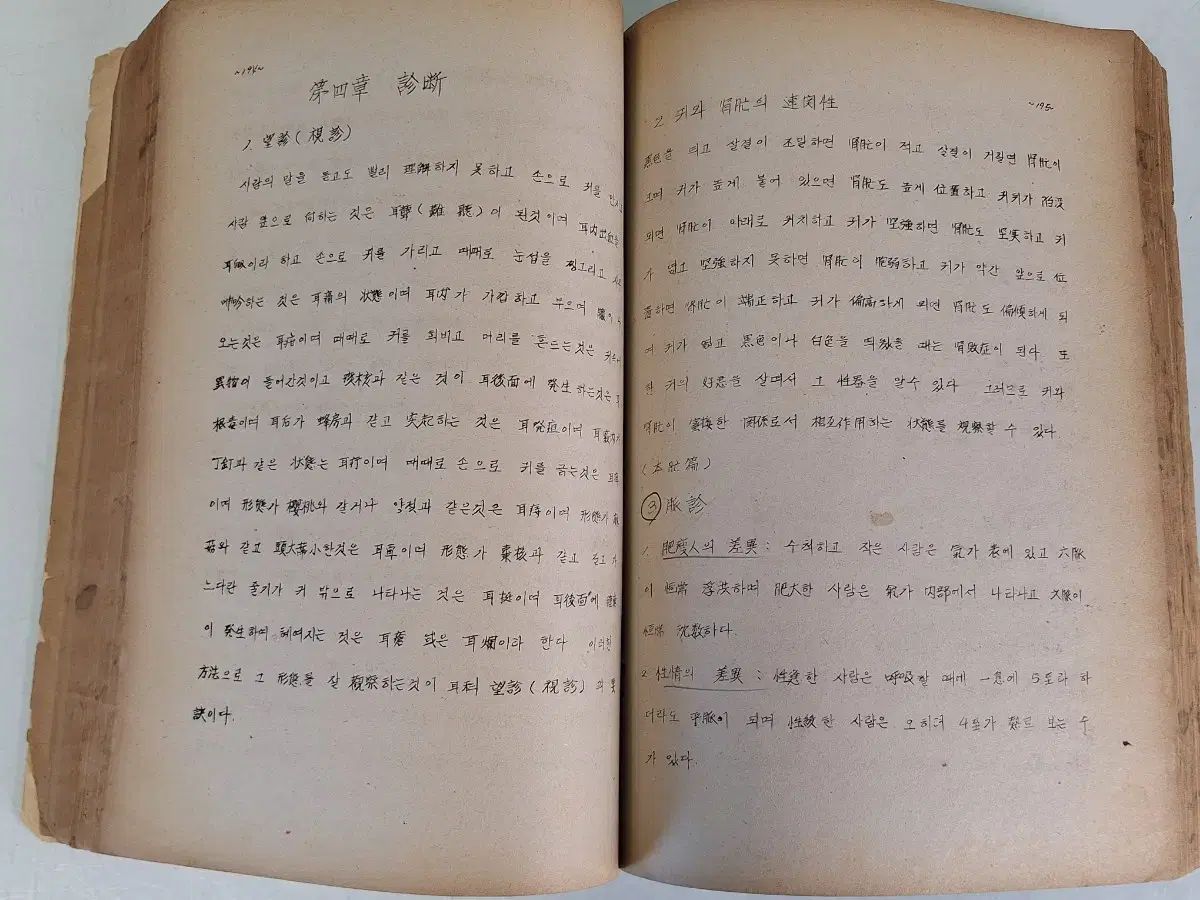 ~194~
第四章 診断
1. 望診(視診)
사람의 말을 듣고도 빨리 理解하지 못하고 손으로 귀를
사람 앞으로 向하는 것은 耳聾(難聽)이 된것이며 耳内出血을
耳衄이라 하고 손으로 귀를 가리고 때때로 눈섭을 찡그리고
呻吟하는 것은 耳痛의 状態이며 耳内가 가렵하고 부으며 膿이
오는것은 耳疳이며 때때로 귀를 희비고 머리를 흔드는것은
異物이 들어간것이고 痰核과 같은 것이 耳後面에 発生하는것은
根毒이며 耳后가 蜂房과 같고 突起하는 것은 이며
丁釘과 같은 状態는 耳疔이며 때때로 손으로 귀를 긁는것은
이며 形態가 櫻桃와 같거나 양젖과 같은것은 耳痔이며 形態가
菇와 같고 頭大蒂小한것은 耳蕈이며 形態가 棗核과 같고
느다란 줄기가 귀 밖으로 나타나는 것은 耳挺이며 耳後面에
이 発生하며 헤여지는 것은 耳瘡 或은 耳爛이라 한다 이러한
方法으로 그 形態를 잘 観察하는것이 耳科 望診(視診)의
訣이다.
~195~
2 귀와 腎臟의 連関性
黒色을 띄고 살결이 조밀하면 腎臟이 적고 살결이 거칠면 腎臟이
크며 귀가 높게 붙어 있으면 腎臟도 높게 位置하고 귀가 陷没
되면 腎臟이 아래로 하고 귀가 坚強하면 腎臟도 坚実하고 귀
가 엷고 坚強하지 못하면 腎臟이 脆弱하고 귀가 약간 앞으로 位
置하면 腎臟이 端正하고 귀가 偏高하게 되면 腎臟도 偏傾하게 되
며 귀가 엷고 黒色이나 白色을 띄였을 때는 腎敗症이 된다. 또
한 귀의 好悪을 살며서 그 性器을 알수 있다 그러므로 귀와
腎臟이 密接한 関係로서 相互作用하는 状態를 観察할 수 있다.
(本臟篇)
③ 脈診
1. 肥瘦人의 差異: 수척하고 작은 사람은 氣가 表에 있고 六脈
이 恒常 浮洪하며 肥大한 사람은 氣가 内部에서 나타나고 六脈이
恒常 沈数하다.
2 性情의 差異: 性急한 사람은 呼吸할 때에 一息에 5도라 하
더라도 平脈이 되며 性緩한 사람은 오히려 4至가 보는 수
가 있다.